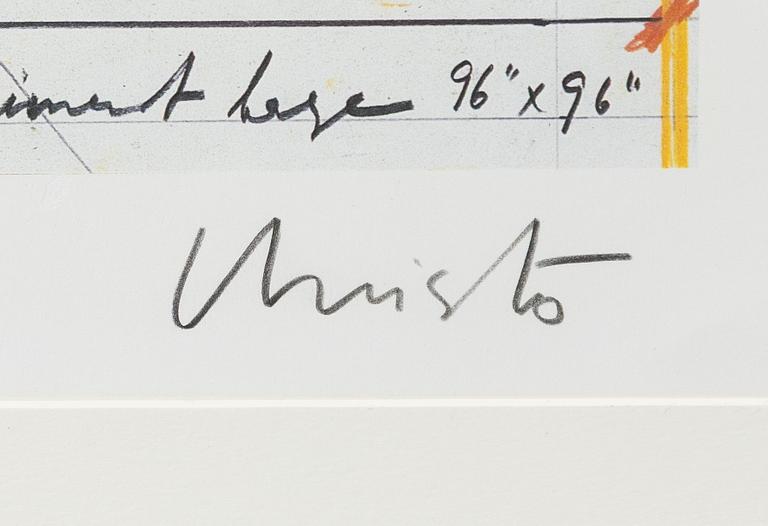 base 96" x 96"
Christo